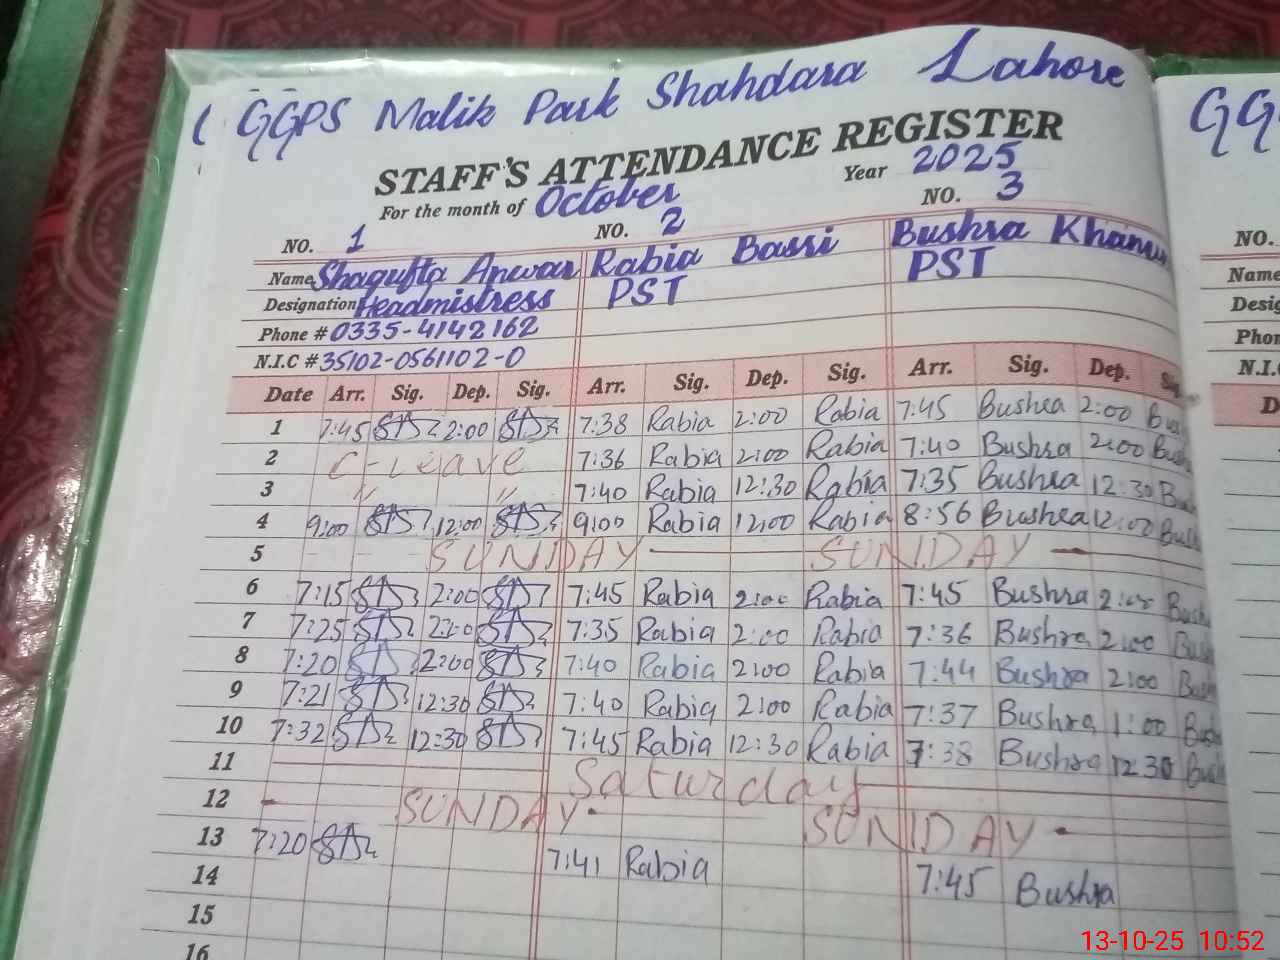 ( GGPS Malik Park Shahdara Lahore
GG
STAFF'S ATTENDANCE REGISTER
For the month of October Year 2025
NO. 1 NO. 2 NO. 3 NO.
Name Shagufta Anwar Rabia Bassi Bushra Khanum Name
Designation Headmistress PST PST Desig
Phone # 0335-4142162 Phon
N.I.C # 35102-0561102-0 N.I.C
Date Arr. Sig. Dep. Sig. Arr. Sig. Dep. Sig. Arr. Sig. Dep. Sig. D
1 7:45 2:00 7:38 Rabia 2:00 Rabia 7:45 Bushra 2:00 Bus
2 C-Leave 7:36 Rabia 2:00 Rabia 7:40 Bushra 2:00 Bush
3 " " 7:40 Rabia 12:30 Rabia 7:35 Bushra 12:30 Bu
4 9:00 12:00 9:00 Rabia 12:00 Rabia 8:56 Bushra 12:00 Bush
5 SUNDAY SUNDAY
6 7:15 2:00 7:45 Rabia 2:00 Rabia 7:45 Bushra 2:00 Bush
7 7:25 2:00 7:35 Rabia 2:00 Rabia 7:36 Bushra 2:00 Bush
8 7:20 2:00 7:40 Rabia 2:00 Rabia 7:44 Bushra 2:00 Bush
9 7:21 12:30 7:40 Rabia 2:00 Rabia 7:37 Bushra 1:00 Bush
10 7:32 12:30 7:45 Rabia 12:30 Rabia 7:38 Bushra 12 30 Bush
11 Saturday
12 SUNDAY SUNDAY
13 7:20 7:41 Rabia 7:45 Bushra
14
15
16
13-10-25 10:52